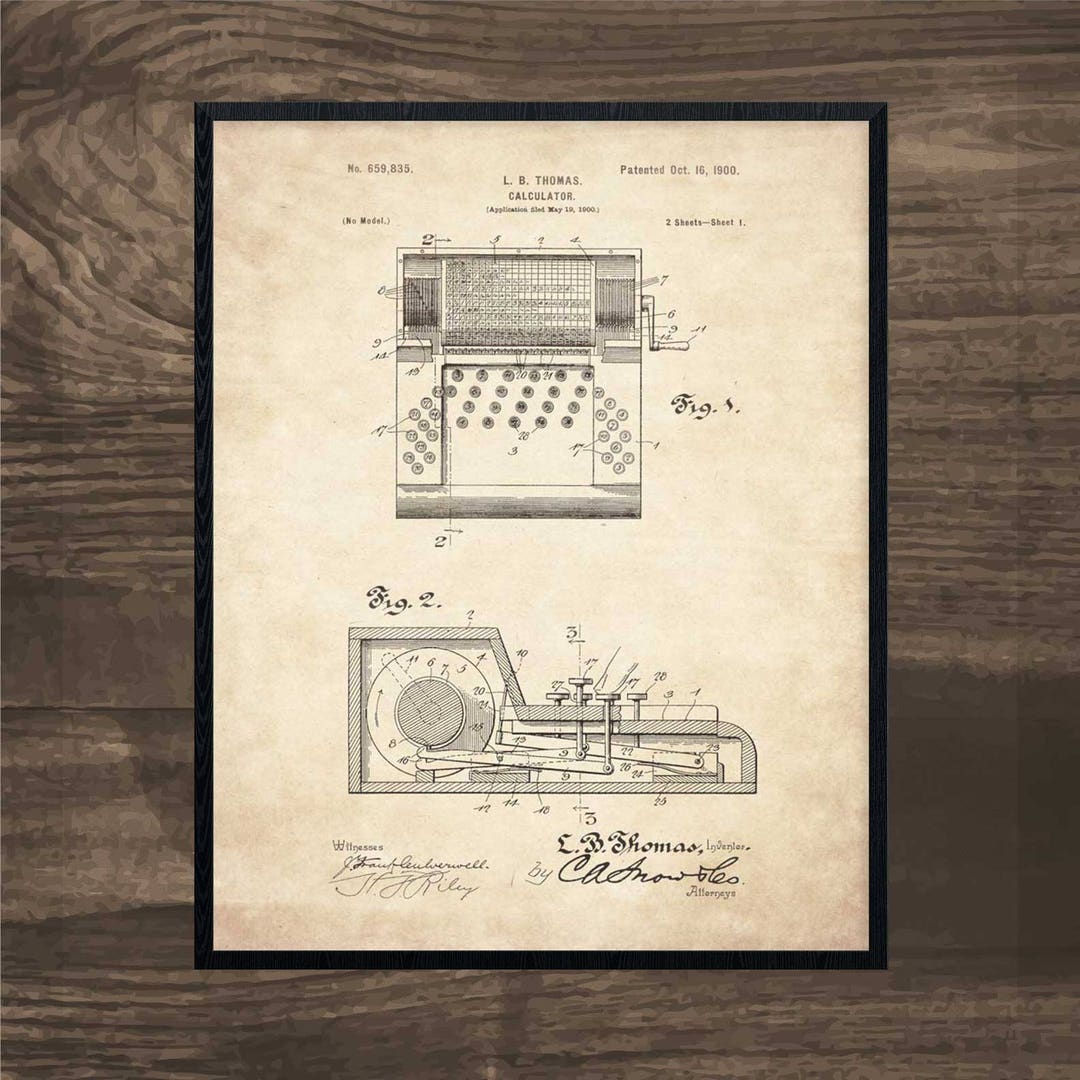 No. 659,835.
Patented Oct. 16, 1900.
L. B. THOMAS.
CALCULATOR.
(Application filed May 19, 1900.)
(No Model.)
2 Sheets—Sheet 1.
2 5 2 4
8 7
6
9 9
11
14 12
19 20 21
17 28 17 1
3
Fig. 1.
2
Fig. 2.
2
3
10 17
11 6 7 5 4
27 17 28
20 3 1
21
15
8 13 9 22 23
16 9 26 24
12 14 18 25
3
Witnesses
L. B. Thomas, Inventor.
by C. A. Snow & Co.
Attorneys